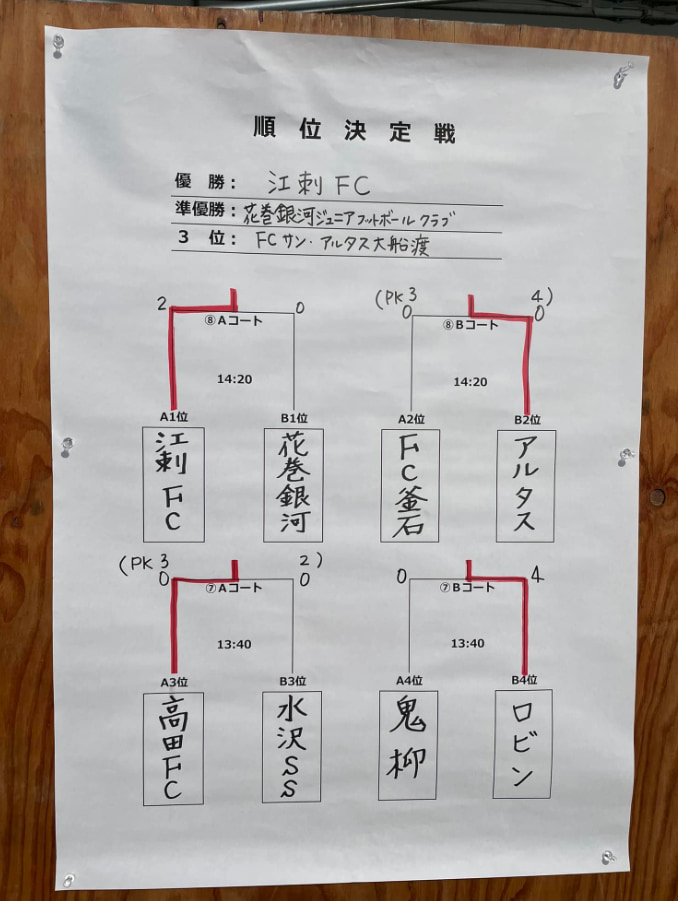 順位決定戦
優 勝： 江刺FC
準優勝：花巻銀河ジュニアフットボールクラブ
3 位： FCサン・アルタス大船渡
2 0
⑧Aコート
14:20
A1位 B1位
江刺FC 花巻銀河
(PK 3 4)
0 0
⑧Bコート
14:20
A2位 B2位
FC釜石 アルタス
(PK 3 2)
0 0
⑦Aコート
13:40
A3位 B3位
高田FC 水沢SS
0 4
⑦Bコート
13:40
A4位 B4位
鬼柳 ロビン